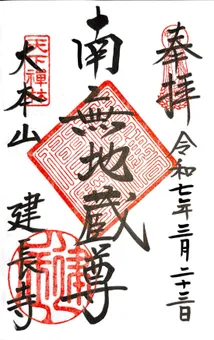 奉拝
令和七年三月二十三日
南無地蔵尊
天下禅林
大本山
建長寺